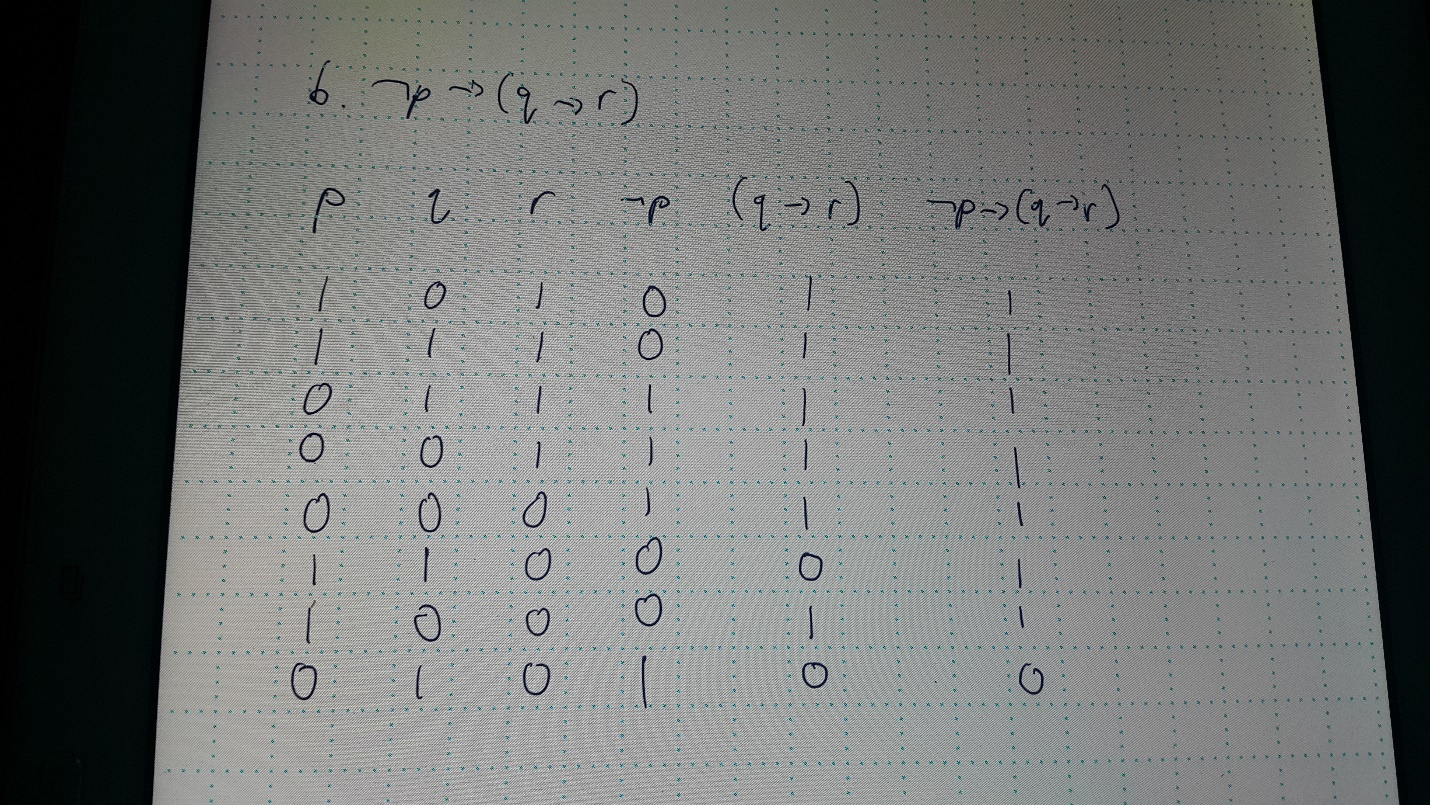 6. ¬p → (q → r)
p q r ¬p (q → r) ¬p → (q → r)
1 0 1 0 1 1
1 1 1 0 1 1
0 1 1 1 1 1
0 0 1 1 1 1
0 0 0 1 1 1
1 1 0 0 0 1
1 0 0 0 1 1
0 1 0 1 0 0